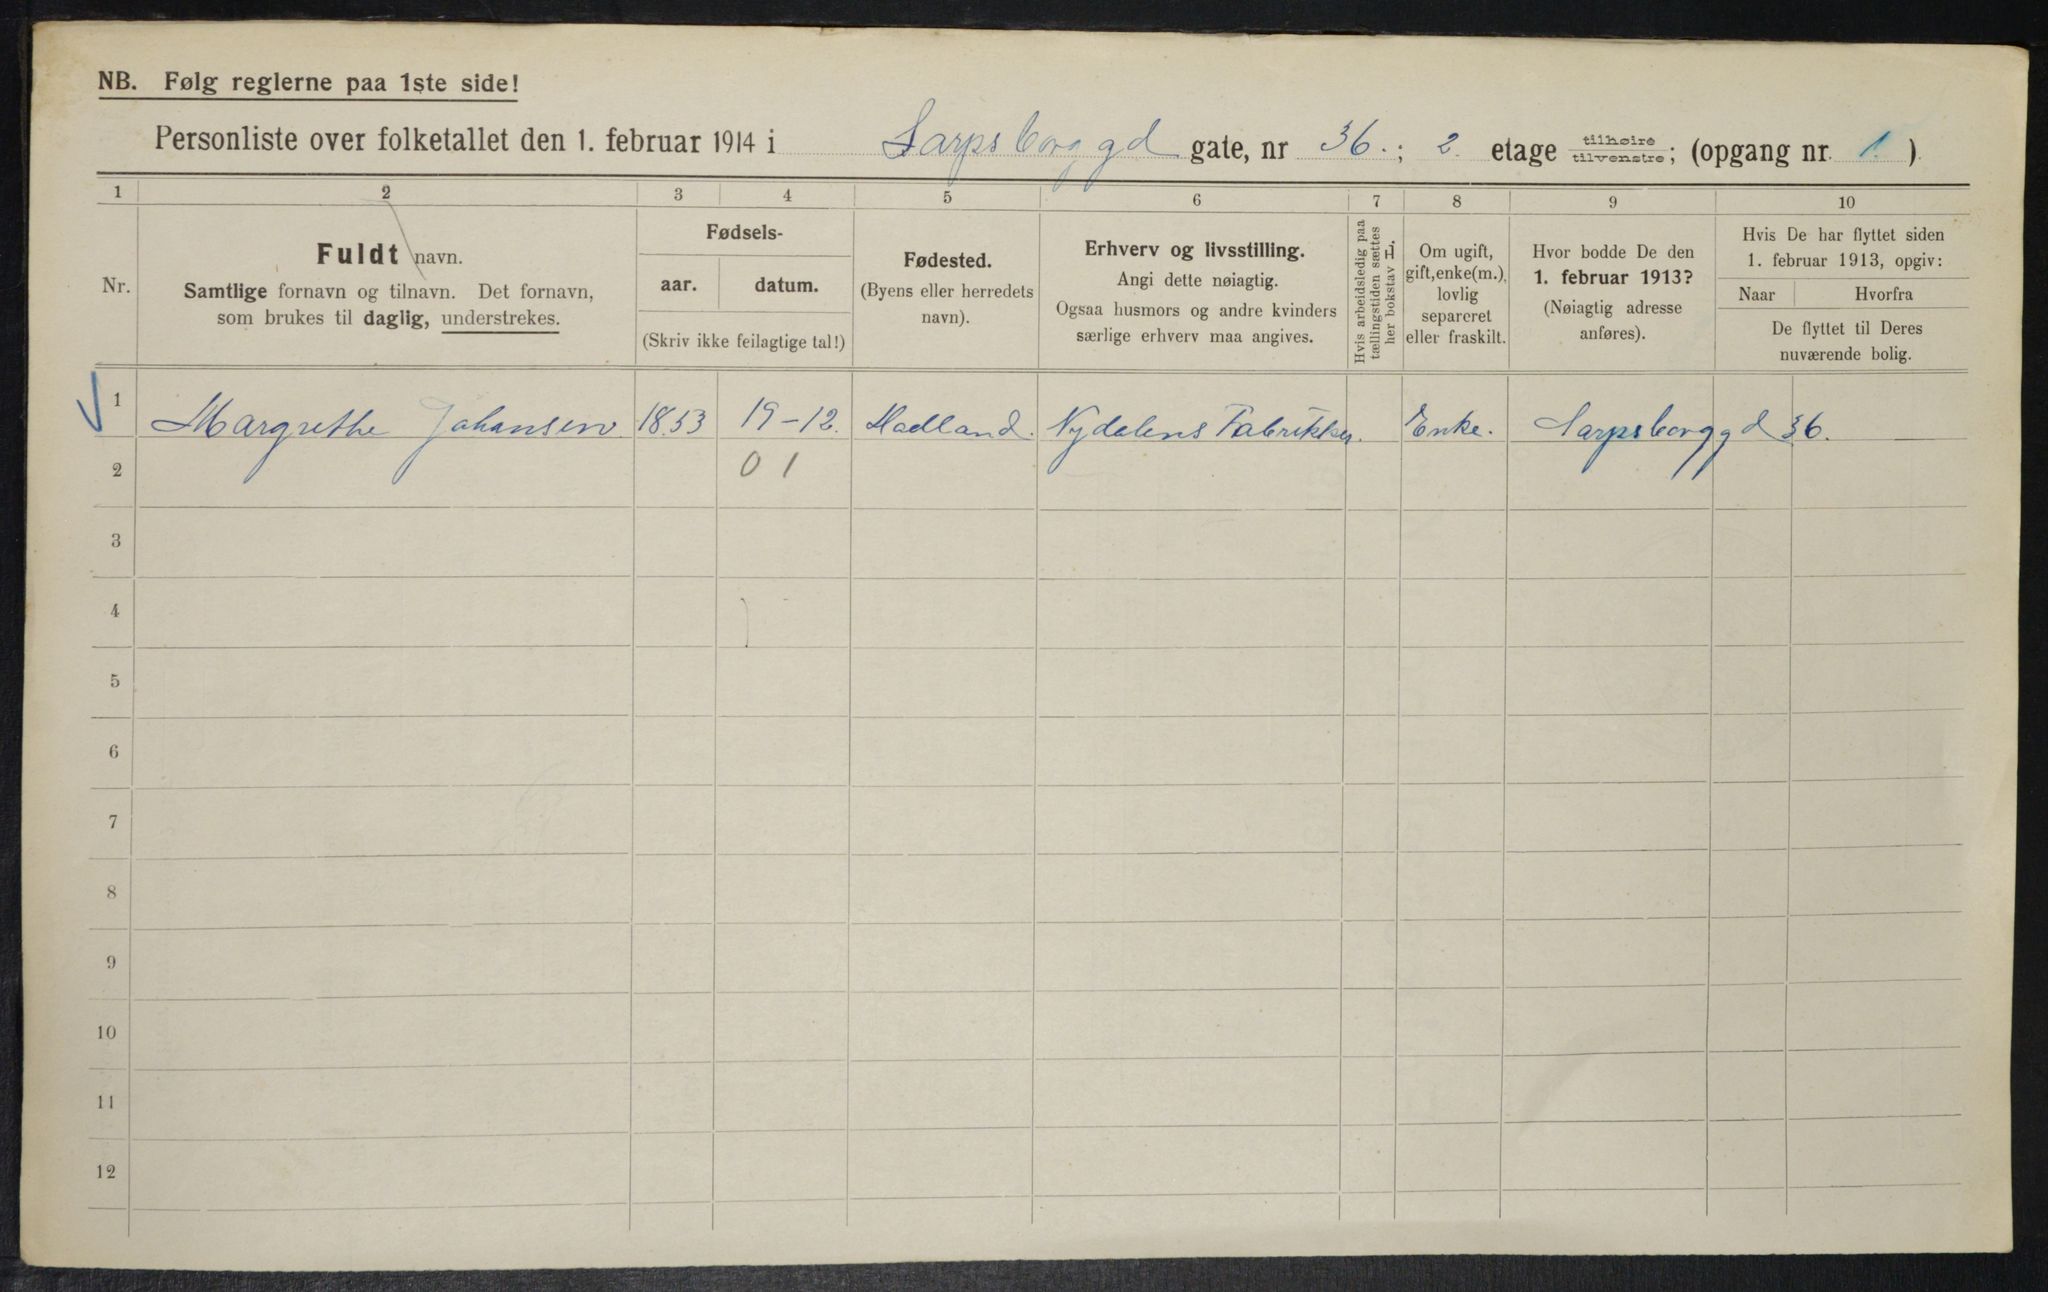 NB. Følg reglerne paa 1ste side!
Personliste over folketallet den 1. februar 1914 i Sarpsborggd gate, nr 36.; 2. etage tilhøire tilvenstre; (opgang nr. 1.)
1 2 3 4 5 6 7 8 9 10
Nr.
Fuldt navn.
Samtlige fornavn og tilnavn. Det fornavn,
som brukes til daglig, understrekes.
Fødsels-
aar. datum.
(Skriv ikke feilagtige tal!)
Fødested.
(Byens eller herredets
navn).
Erhverv og livsstilling.
Angi dette nøiagtig.
Ogsaa husmors og andre kvinders
særlige erhverv maa angives.
Hvis arbeidsledig paa
tællingstiden sættes
her bokstav L.
Om ugift,
gift, enke(m.),
lovlig
separeret
eller fraskilt.
Hvor bodde De den
1. februar 1913?
(Nøiagtig adresse
anføres).
Hvis De har flyttet siden
1. februar 1913, opgiv:
Naar Hvorfra
De flyttet til Deres
nuværende bolig.
1 Margrethe Johansen 1853 19-12. Hadland. Nydalens Fabrikker. Enke. Sarpsborggd 36.
2 01
3
4
5
6
7
8
9
10
11
12